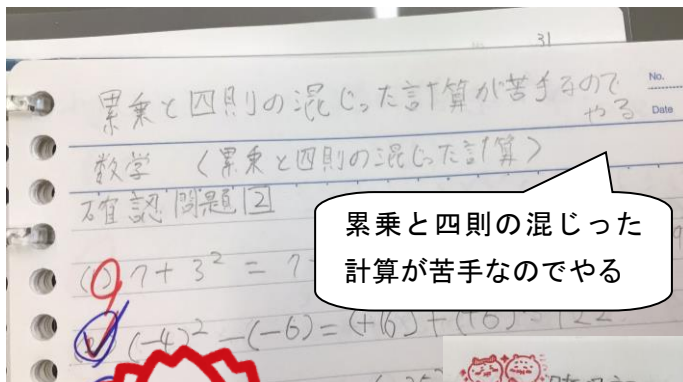 31
累乗と四則の混じった計算が苦手なので
やる
No.
Date
数学 〈累乗と四則の混じった計算〉
確認問題2
(1) 7+3² = 7
(-4)²-(-6)=(+16)+(+6)
累乗と四則の混じった
計算が苦手なのでやる